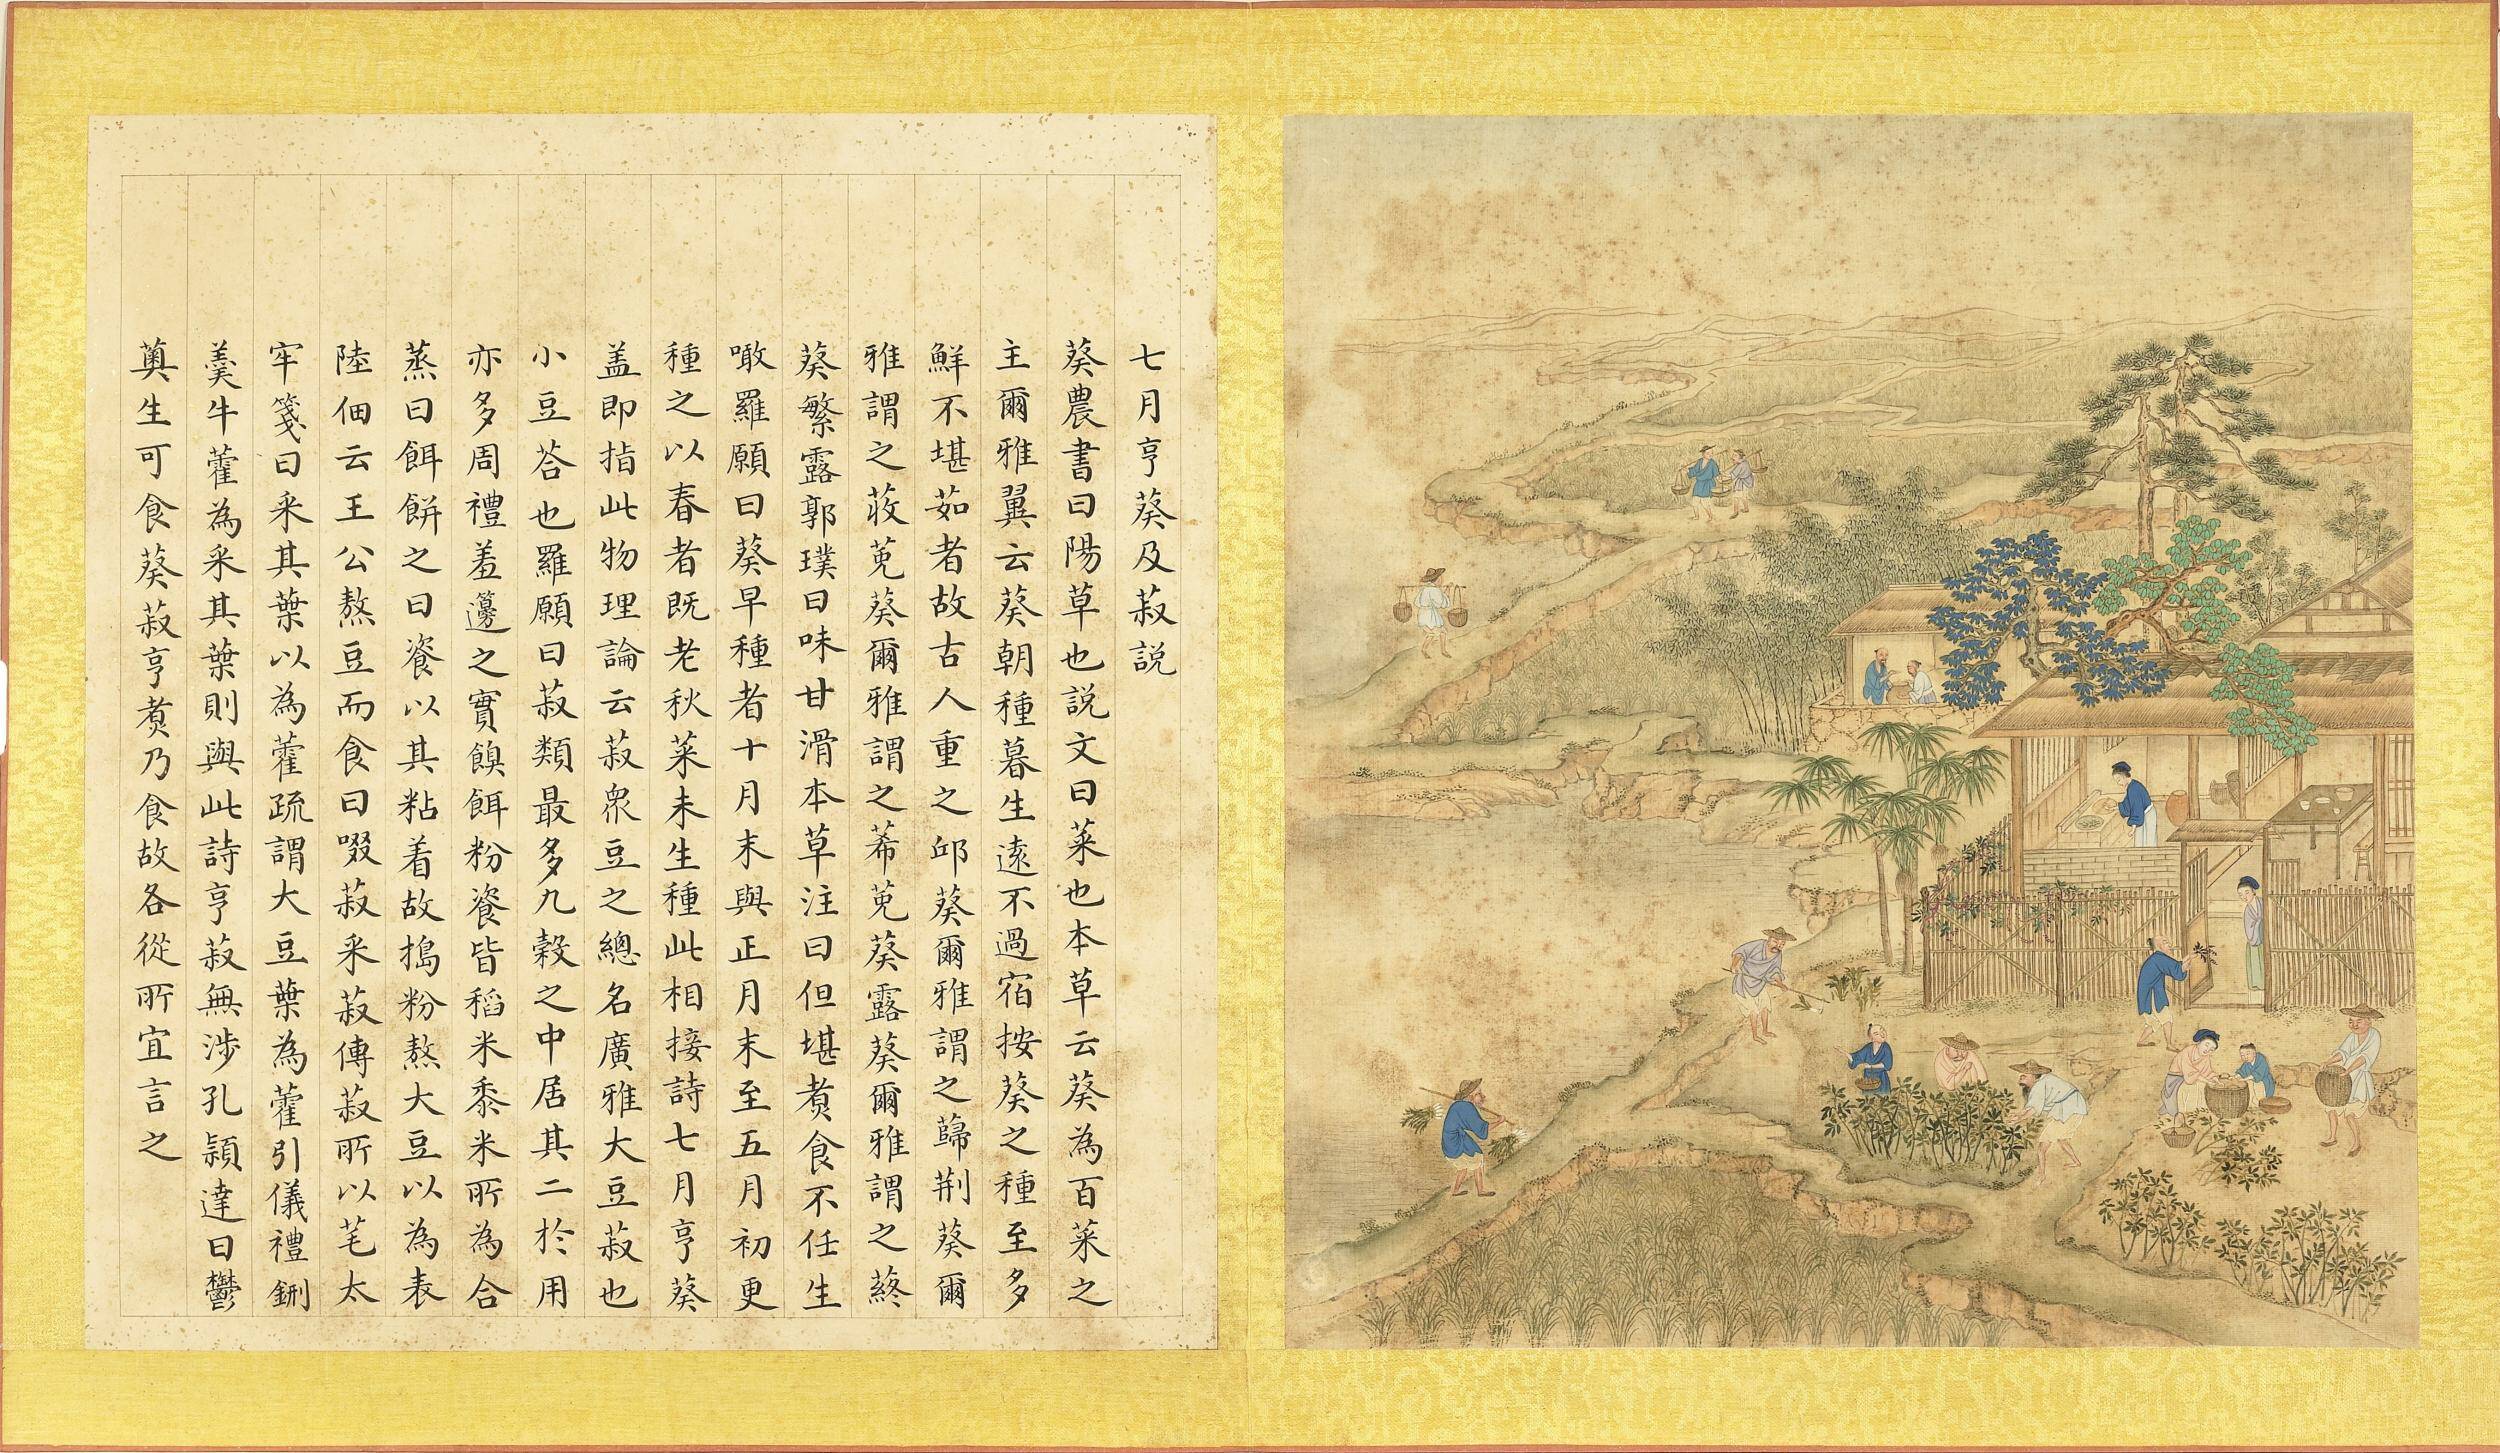 七月亨葵及菽説
葵農書曰陽草也説文曰菜也本草云葵為百菜之
主爾雅翼云葵朝種暮生遠不過宿按葵之種至多
鮮不堪茹者故古人重之邱葵爾雅謂之蘬荆葵爾
雅謂之荍莵葵爾雅謂之莃莵葵露葵爾雅謂之蔠
葵繁露郭璞曰味甘滑本草注曰但堪煮食不任生
噉羅願曰葵早種者十月末與正月末至五月初更
種之以春者既老秋菜未生種此相接詩七月亨葵
盖即指此物理論云菽眾豆之總名廣雅大豆菽也
小豆荅也羅願曰菽類最多九榖之中居其二於用
亦多周禮羞籩之實餱餌粉餈皆稻米黍米所為合
蒸曰餌餅之曰餈以其粘着故搗粉熬大豆以為表
陸佃云王公熬豆而食曰啜菽采菽傳菽所以芼太
牢箋曰采其葉以為藿疏謂大豆葉為藿引儀禮鉶
羹牛藿為采其葉則與此詩亨菽無涉孔穎達曰鬱
薁生可食葵菽亨煮乃食故各從所宜言之